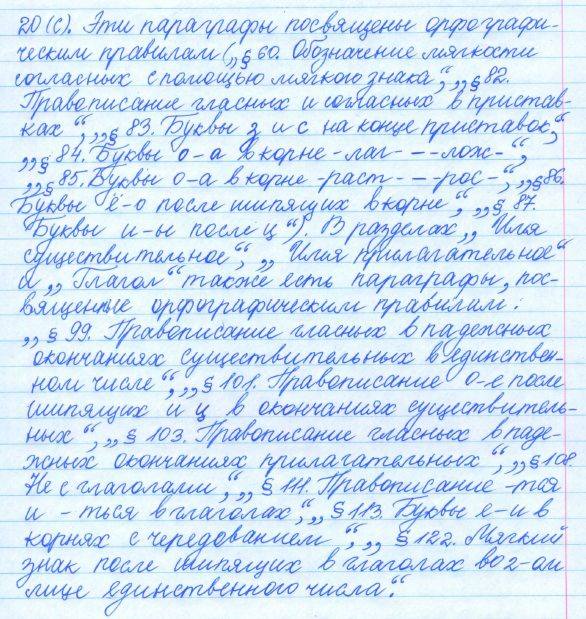 20(с). Эти параграфы посвящены орфографи-
ческим правилам („§ 60. Обозначение мягкости
согласных с помощью мягкого знака“, „§ 82.
Правописание гласных и согласных в пристав-
ках“, „§ 83. Буквы з и с на конце приставок“,
„§ 84. Буквы о-а в корне -лаг- – -лож-“,
„§ 85. Буквы о-а в корне -раст- – -рос-“, „§ 86.
Буквы ё-о после шипящих в корне“, „§ 87.
Буквы и-ы после ц“). В разделах „Имя
существительное“, „Имя прилагательное“
и „Глагол“ также есть параграфы, пос-
вященные орфографическим правилам:
„§ 99. Правописание гласных в падежных
окончаниях существительных в единствен-
ном числе“, „§ 101. Правописание о-е после
шипящих и ц в окончаниях существитель-
ных“, „§ 103. Правописание гласных в паде-
жных окончаниях прилагательных“, „§ 108.
Не с глаголами“, „§ 111. Правописание -тся
и -ться в глаголах“, „§ 113. Буквы е-и в
корнях с чередованием“, „§ 122. Мягкий
знак после шипящих в глаголах во 2-ом
лице единственного числа“.